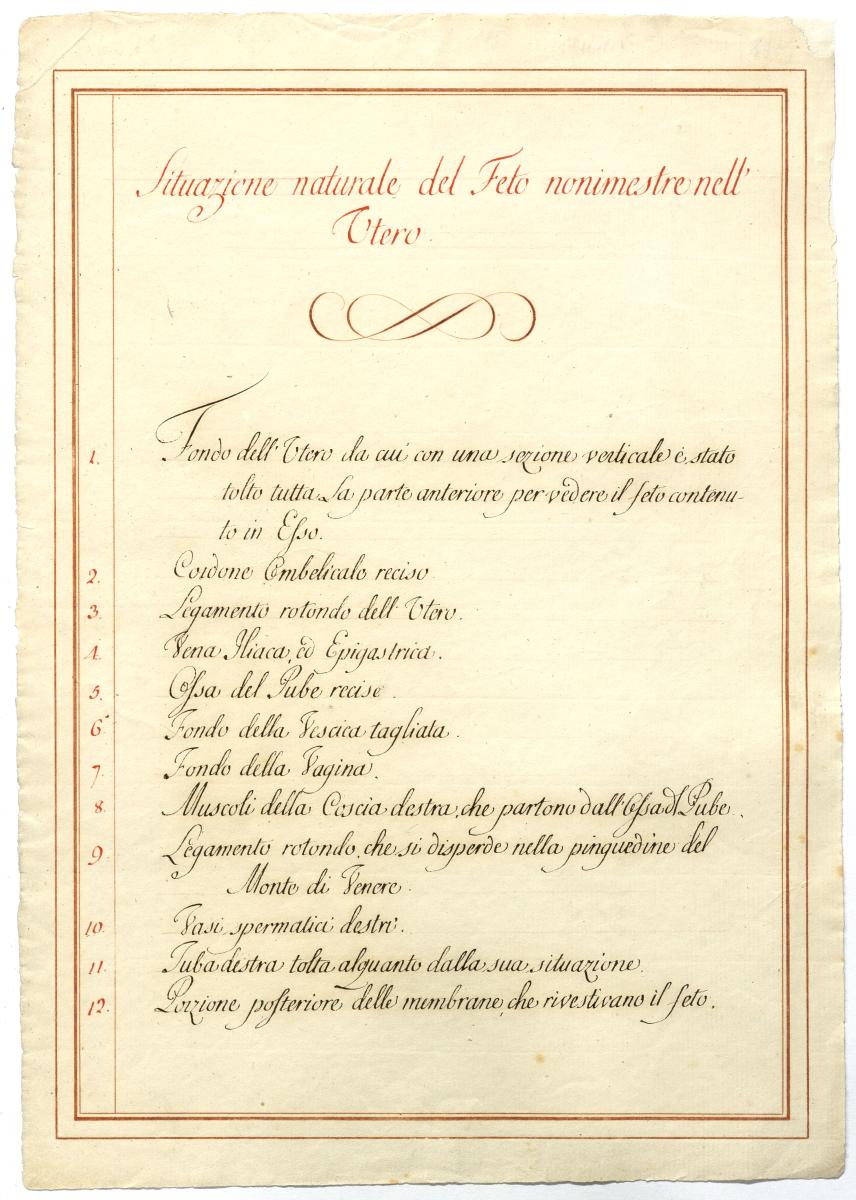 Situazione naturale del Feto nonimestre nell'
Utero.
1. Fondo dell'Utero da cui con una sezione verticale è stato
tolto tutta La parte anteriore per vedere il feto contenu-
to in Esso.
2. Cordone Ombelicalo reciso
3. Legamento rotondo dell'Utero.
4. Vena Iliaca, ed Epigastrica.
5. Ossa del Pube recise.
6. Fondo della Vescica tagliata.
7. Fondo della Vagina.
8. Muscoli della Coscia destra, che partono dall'Ossa dl Pube.
9. Legamento rotondo, che si disperde nella pinguedine del
Monte di Venere.
10. Vasi spermatici destri.
11. Tuba destra tolta alquanto dalla sua situazione.
12. Porzione posteriore delle membrane, che rivestivano il feto.